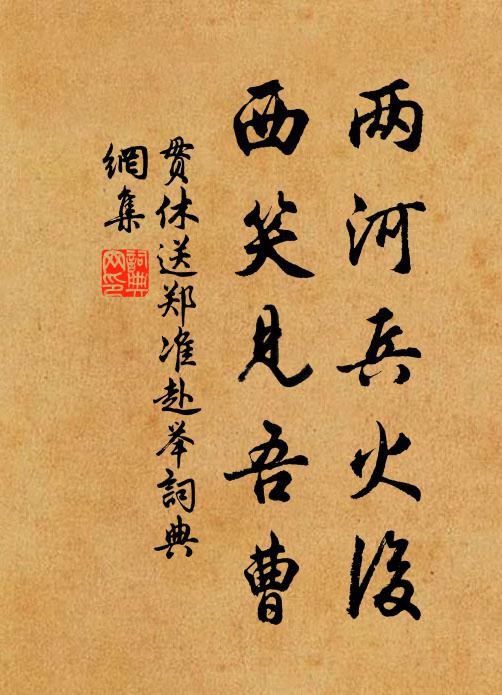 两河兵火後
西笑見吾曹
贯休送郑准赴举詞典
網集
詞典
网印